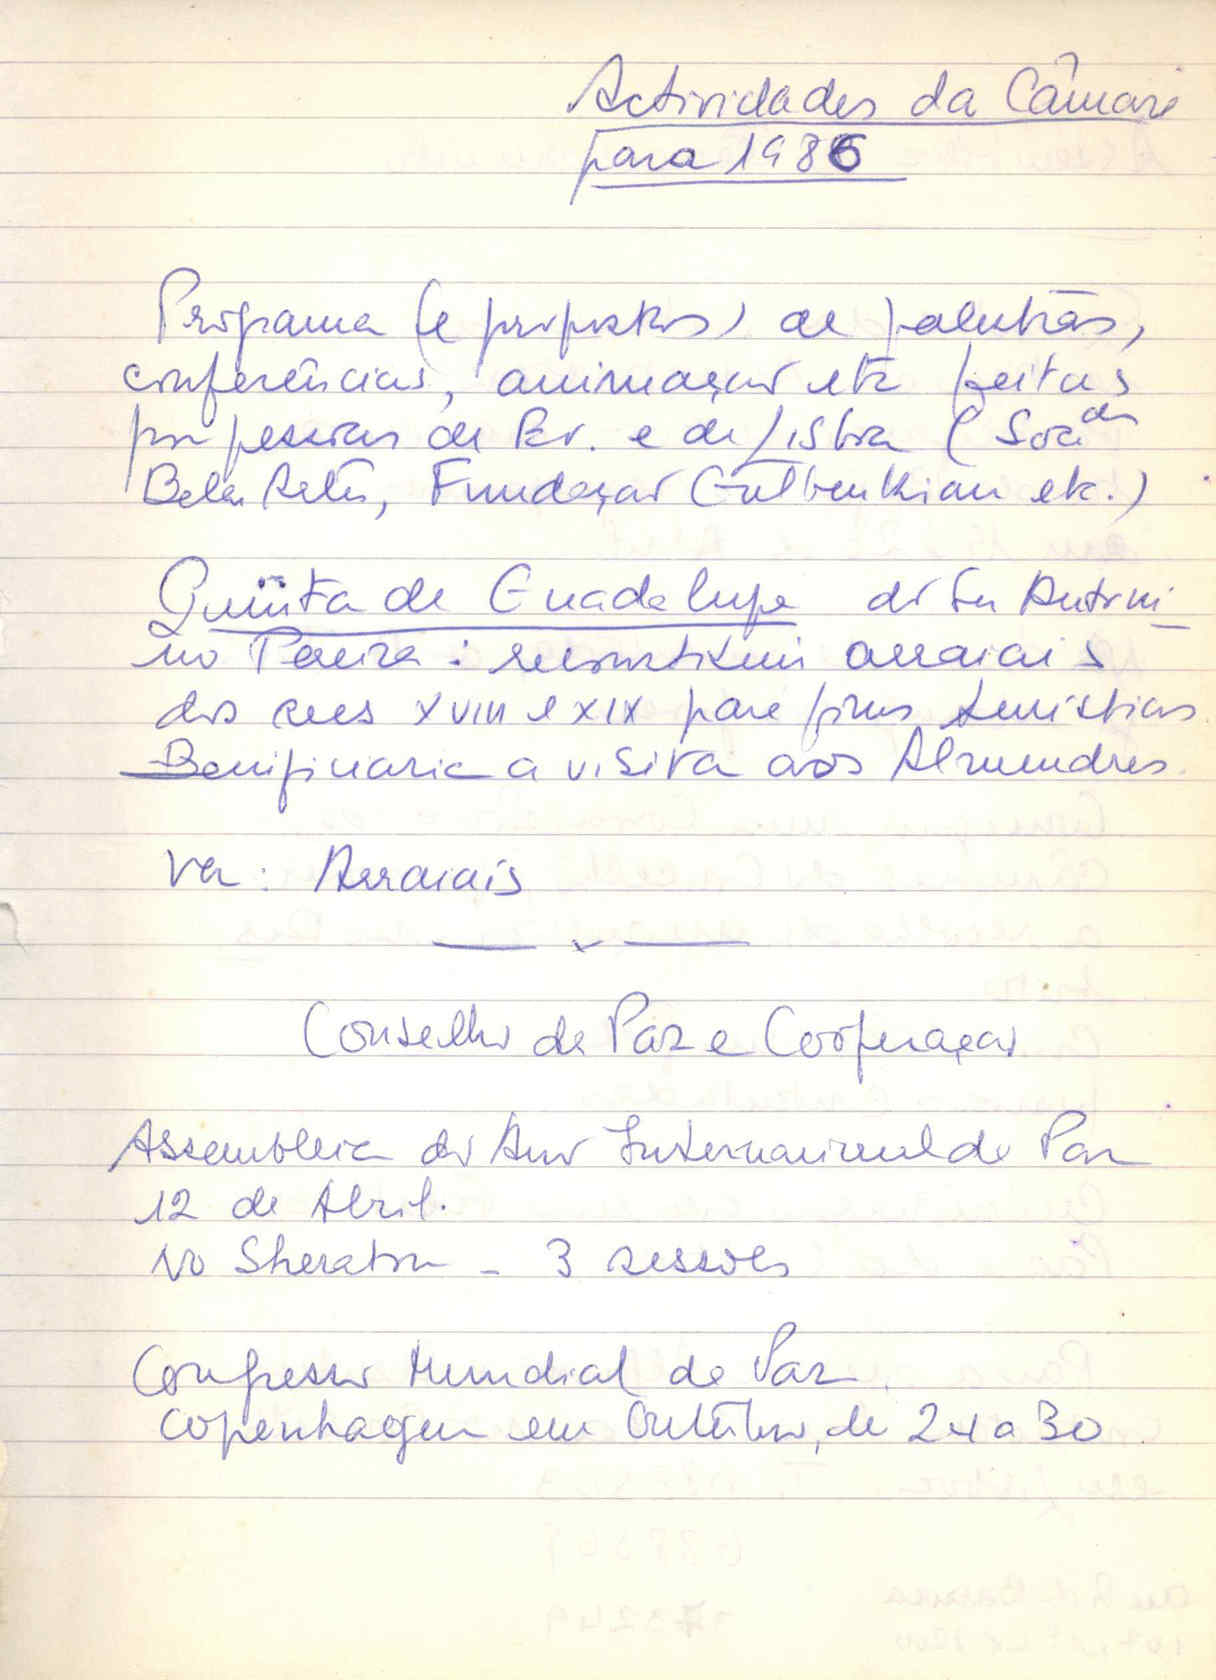 Actividades da Câmara
para 1986
Programa (e propostas) de palestras,
conferências, animação etc feitas
por pessoas de Ev. e de Lisboa (Soc de
Belas Artes, Fundação Gulbenkian etc.)
Quinta de Guadalupe do Sr Antoni
no Pereira: reconstituir arraiais
dos secs XVIII e XIX para fins turísticos
Benificiaria a visita aos Almendres.
Ver: Arraiais
Conselho da Paz e Cooperação
Assembleia do Ano Internacional da Paz
12 de Abril.
No Sheraton - 3 sessões
Congresso Mundial da Paz
Copenhagen em Outubro, de 24 a 30